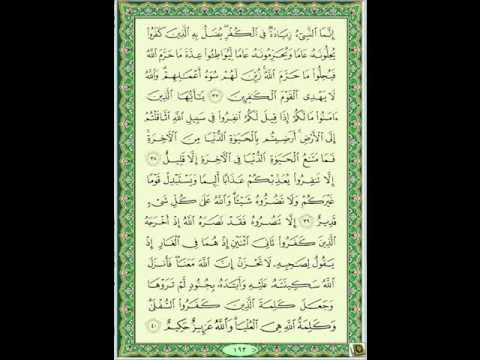 إِنَّمَا ٱلنَّسِىٓءُ زِيَادَةٌ فِى ٱلْكُفْرِ يُضَلُّ بِهِ ٱلَّذِينَ كَفَرُوا۟
يُحِلُّونَهُۥ عَامًا وَيُحَرِّمُونَهُۥ عَامًا لِّيُوَاطِـُٔوا۟ عِدَّةَ مَا حَرَّمَ ٱللَّهُ
فَيُحِلُّوا۟ مَا حَرَّمَ ٱللَّهُ زُيِّنَ لَهُمْ سُوٓءُ أَعْمَٰلِهِمْ وَٱللَّهُ
لَا يَهْدِى ٱلْقَوْمَ ٱلْكَٰفِرِينَ ٣٧ يَٰٓأَيُّهَا ٱلَّذِينَ
ءَامَنُوا۟ مَا لَكُمْ إِذَا قِيلَ لَكُمُ ٱنفِرُوا۟ فِى سَبِيلِ ٱللَّهِ ٱثَّاقَلْتُمْ
إِلَى ٱلْأَرْضِ أَرَضِيتُم بِٱلْحَيَوٰةِ ٱلدُّنْيَا مِنَ ٱلْءَاخِرَةِ
فَمَا مَتَٰعُ ٱلْحَيَوٰةِ ٱلدُّنْيَا فِى ٱلْءَاخِرَةِ إِلَّا قَلِيلٌ ٣٨
إِلَّا تَنفِرُوا۟ يُعَذِّبْكُمْ عَذَابًا أَلِيمًا وَيَسْتَبْدِلْ قَوْمًا
غَيْرَكُمْ وَلَا تَضُرُّوهُ شَيْـًٔا وَٱللَّهُ عَلَىٰ كُلِّ شَىْءٍ
قَدِيرٌ ٣٩ إِلَّا تَنصُرُوهُ فَقَدْ نَصَرَهُ ٱللَّهُ إِذْ أَخْرَجَهُ
ٱلَّذِينَ كَفَرُوا۟ ثَانِىَ ٱثْنَيْنِ إِذْ هُمَا فِى ٱلْغَارِ إِذْ
يَقُولُ لِصَٰحِبِهِۦ لَا تَحْزَنْ إِنَّ ٱللَّهَ مَعَنَا فَأَنزَلَ
ٱللَّهُ سَكِينَتَهُۥ عَلَيْهِ وَأَيَّدَهُۥ بِجُنُودٍ لَّمْ تَرَوْهَا
وَجَعَلَ كَلِمَةَ ٱلَّذِينَ كَفَرُوا۟ ٱلسُّفْلَىٰ
وَكَلِمَةُ ٱللَّهِ هِىَ ٱلْعُلْيَا وَٱللَّهُ عَزِيزٌ حَكِيمٌ ٤٠
١٩٣